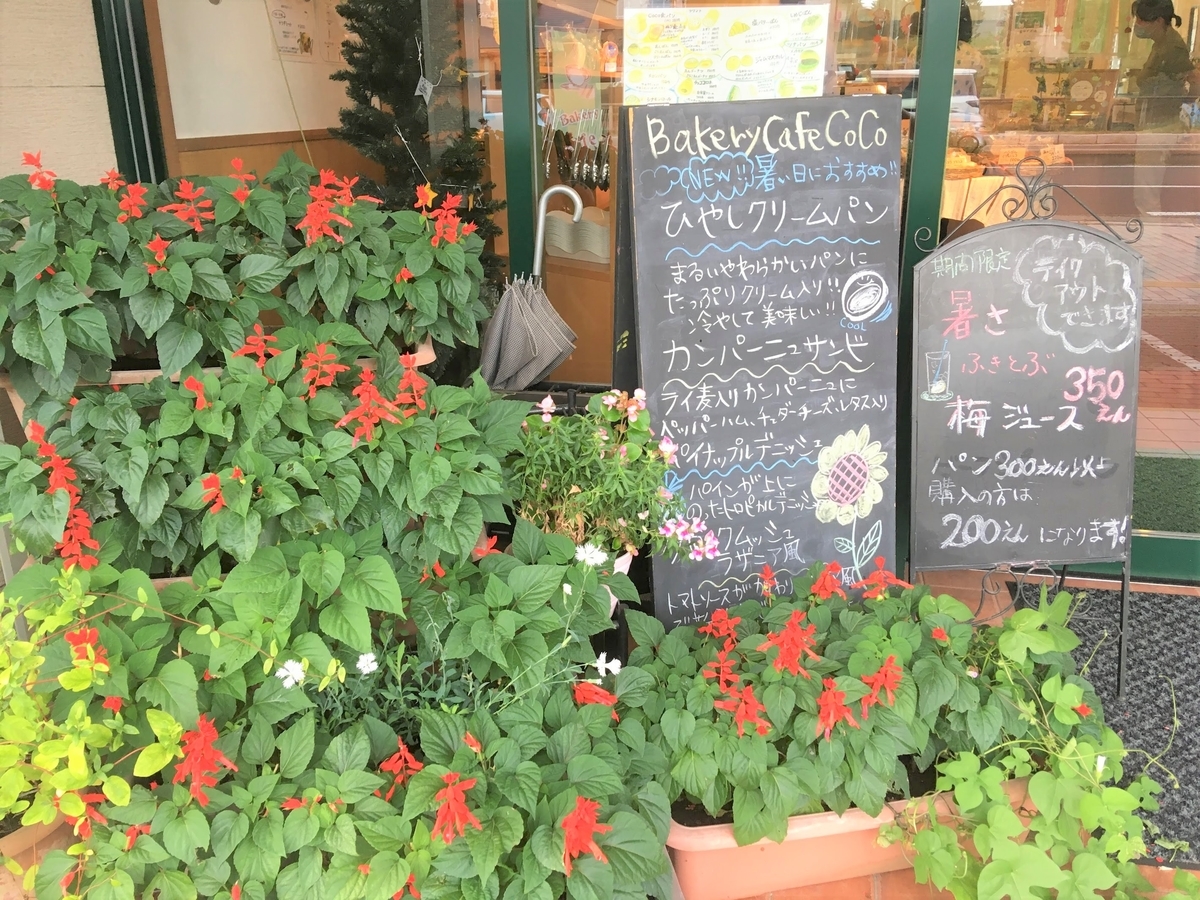 Bakery Cafe CoCo
NEW!! 暑い日におすすめ!!
ひやしクリームパン
まるいやわらかいパンに
たっぷりクリーム入り!!
冷やして美味しい!!
COOL
カンパーニュサンド
ライ麦入りカンパーニュに
ペッパーハム、チェダーチーズ、レタス入り
パイナップルデニッシュ
パインが上に
のったトロピカルデニッシュ
クムッシュ
ラザニア風
トマトソースが
期間限定
テイク
アウト
できます
暑さ
ふきとぶ
350
えん
梅ジュース
パン300えん以上
購入の方は
200えんになります!